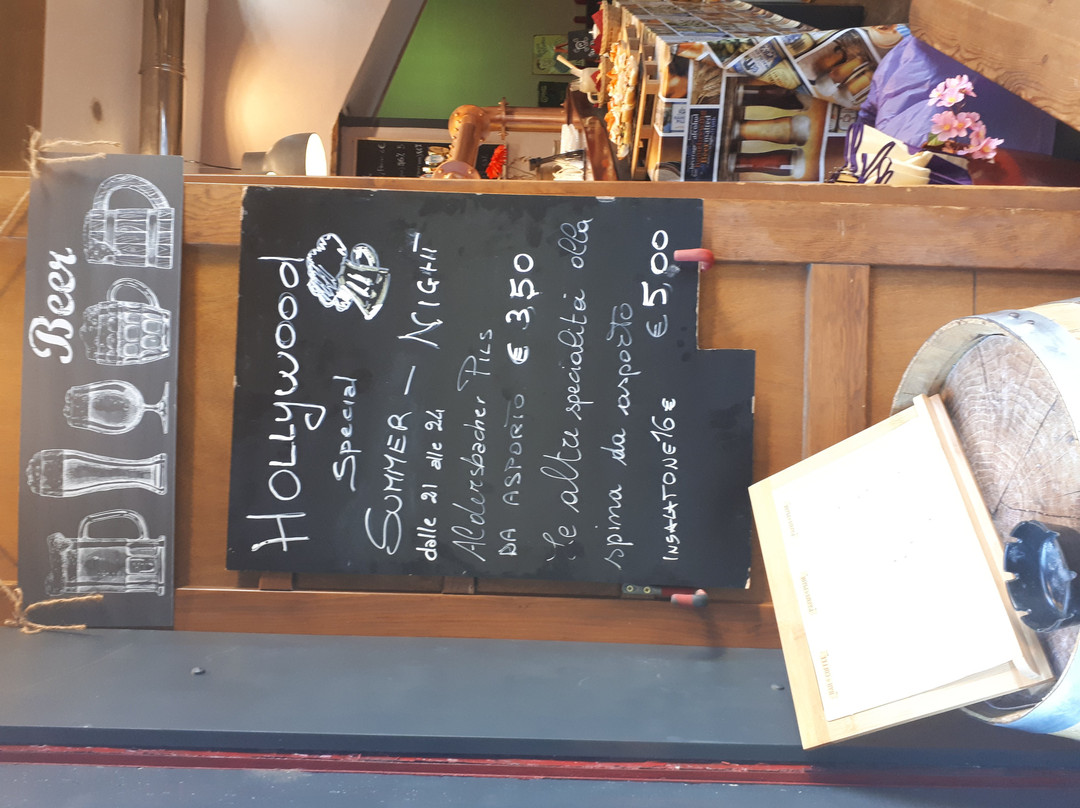 Beer
HOLLYWOOD
Special
SUMMER - NIGHT
dalle 21 alle 24
Aldersbacher PILS
DA ASPORTO € 3,50
Le altre specialità alla
spina da asporto
€ 5,00
INSALATONE 16 €